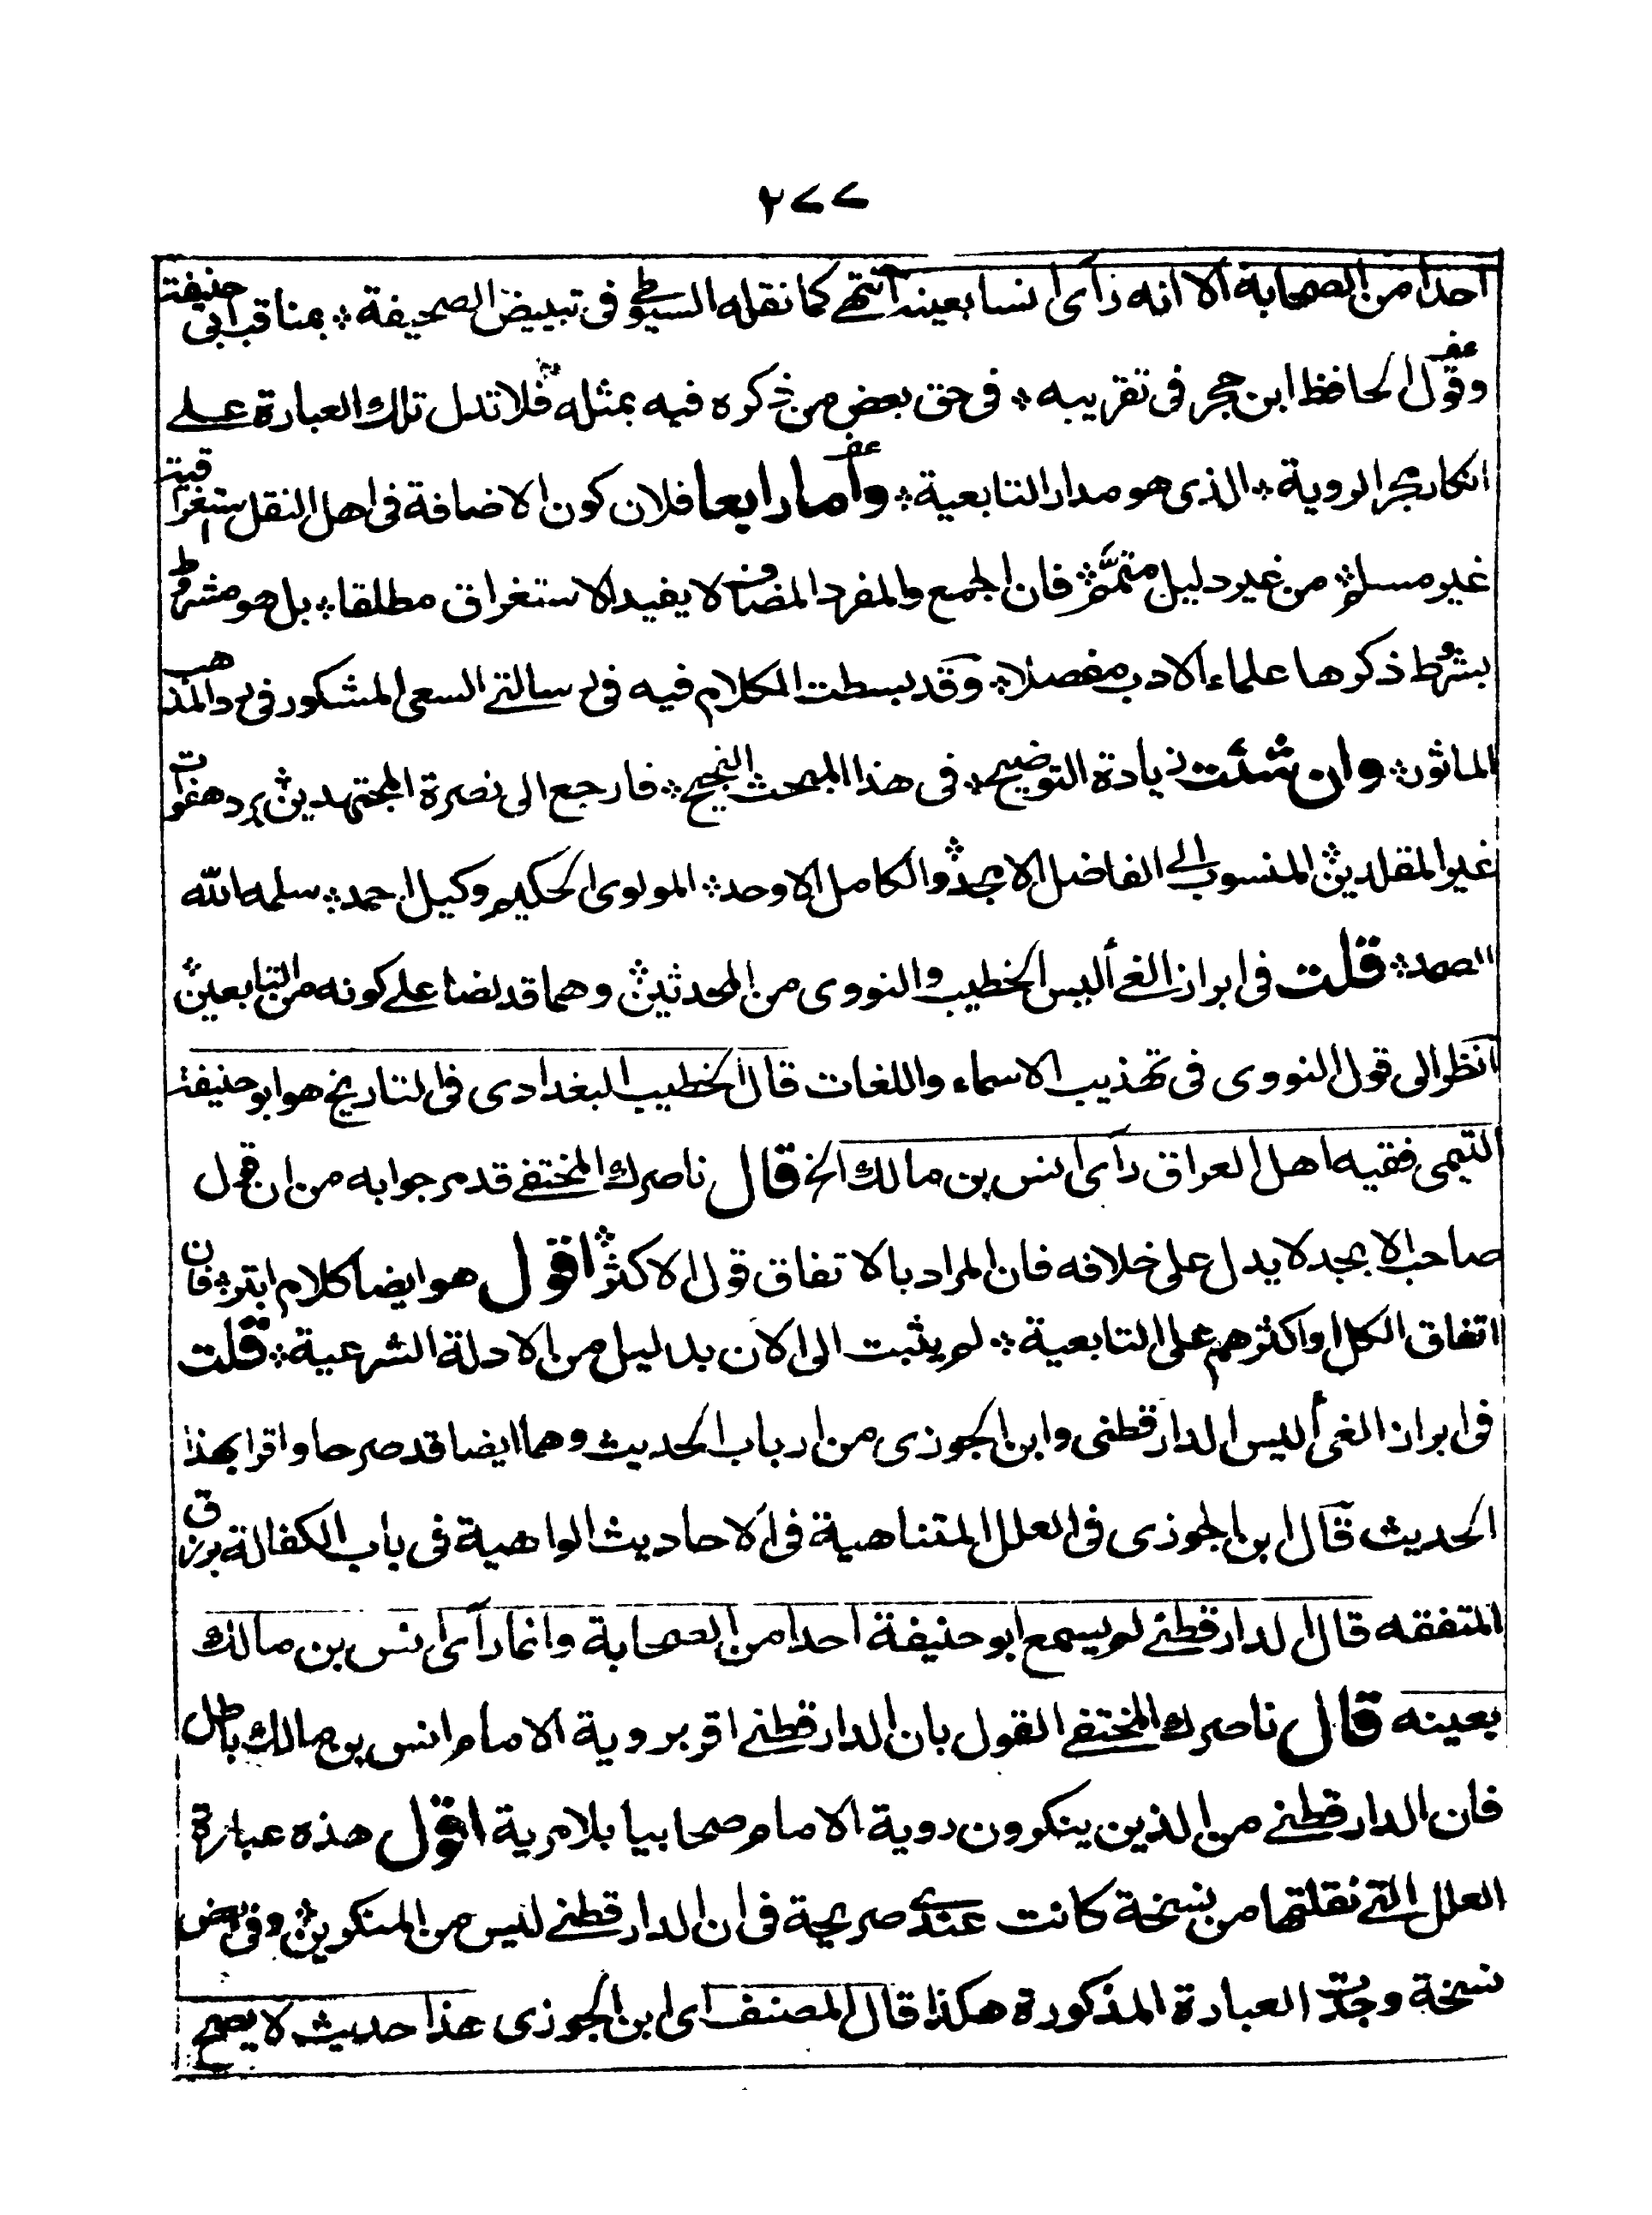 ٢٧٧
احدا من الصحابة الا انه رأى انسا بعينه انتهى كما نقله السيوطي فى تبييض الصحيفة ؞ بمناقب ابي حنيفة
وقول الحافظ ابن حجر فى تقريبه ؞ فى حق بعض من ذكره فيه بمثله ؞ فلا تدل تلك العبارة على
انكار مجرد الروية ؞ الذى هو مدار التابعية ؞ وأما رابعا فلان كون الاضافة فى اهل النقل استغراقية
غير مسلم ؞ من غير دليل متمم ؞ فان الجمع والمفرد المضاف لا يفيد الاستغراق مطلقا ؞ بل هو مشروط
بشروط ذكرها علماء الادب مفصلا ؞ وقد بسطت الكلام فيه فى رسالتى السعى المشكور فى رد المذهب
الماثور ؞ وان شئت زيادة التوضيح ؞ فى هذا المبحث النجيح ؞ فارجع الى نصرة المجتهدين ؞ برد هفوات
غير المقلدين ؞ المنسوب الى الفاضل الامجد ؞ والكامل الاوحد ؞ المولوى الحكيم وكيل احمد ؞ سلمه الله
الصمد ؞ قلت فى ابراز الغى أليس الخطيب والنووى من المحدثين ؞ وهما قد نصا على كونه من التابعين ؞
انظر الى قول النووى فى تهذيب الاسماء واللغات قال الخطيب البغدادى فى التاريخ هو ابو حنيفة
التيمى فقيه اهل العراق رأى انس بن مالك الخ قال ناصرك المختفى قد مر جوابه من ان قول
صاحب الابجد لا يدل على خلافه فان المراد بالاتفاق قول الاكثر ؞ اقول هو ايضا كلام ابتر ؞ فان
اتفاق الكل او اكثرهم على التابعية ؞ لم يثبت الى الان بدليل من الادلة الشرعية ؞ قلت
فى ابراز الغى أليس الدارقطنى وابن الجوزى من ارباب الحديث وهما ايضا قد صرحا واقرا بهذا
الحديث قال ابن الجوزى فى العلل المتناهية فى الاحاديث الواهية فى باب الكفالة برزق
المتفقه قال الدارقطنى لم يسمع ابو حنيفة احدا من الصحابة وانما رأى انس بن مالك
بعينه قال ناصرك المختفى القول بان الدارقطنى اقر بروية الامام انس بن مالك باطل
فان الدارقطنى من الذين ينكرون روية الامام صحابيا بلا مرية اقول هذه عبارة
العلل التى نقلتها من نسخة كانت عندى صريحة فى ان الدارقطنى ليس من المنكرين ؞ وفى بعض
نسخة وجدت العبارة المذكورة هكذا قال المصنف اى ابن الجوزى هذا حديث لا يصح